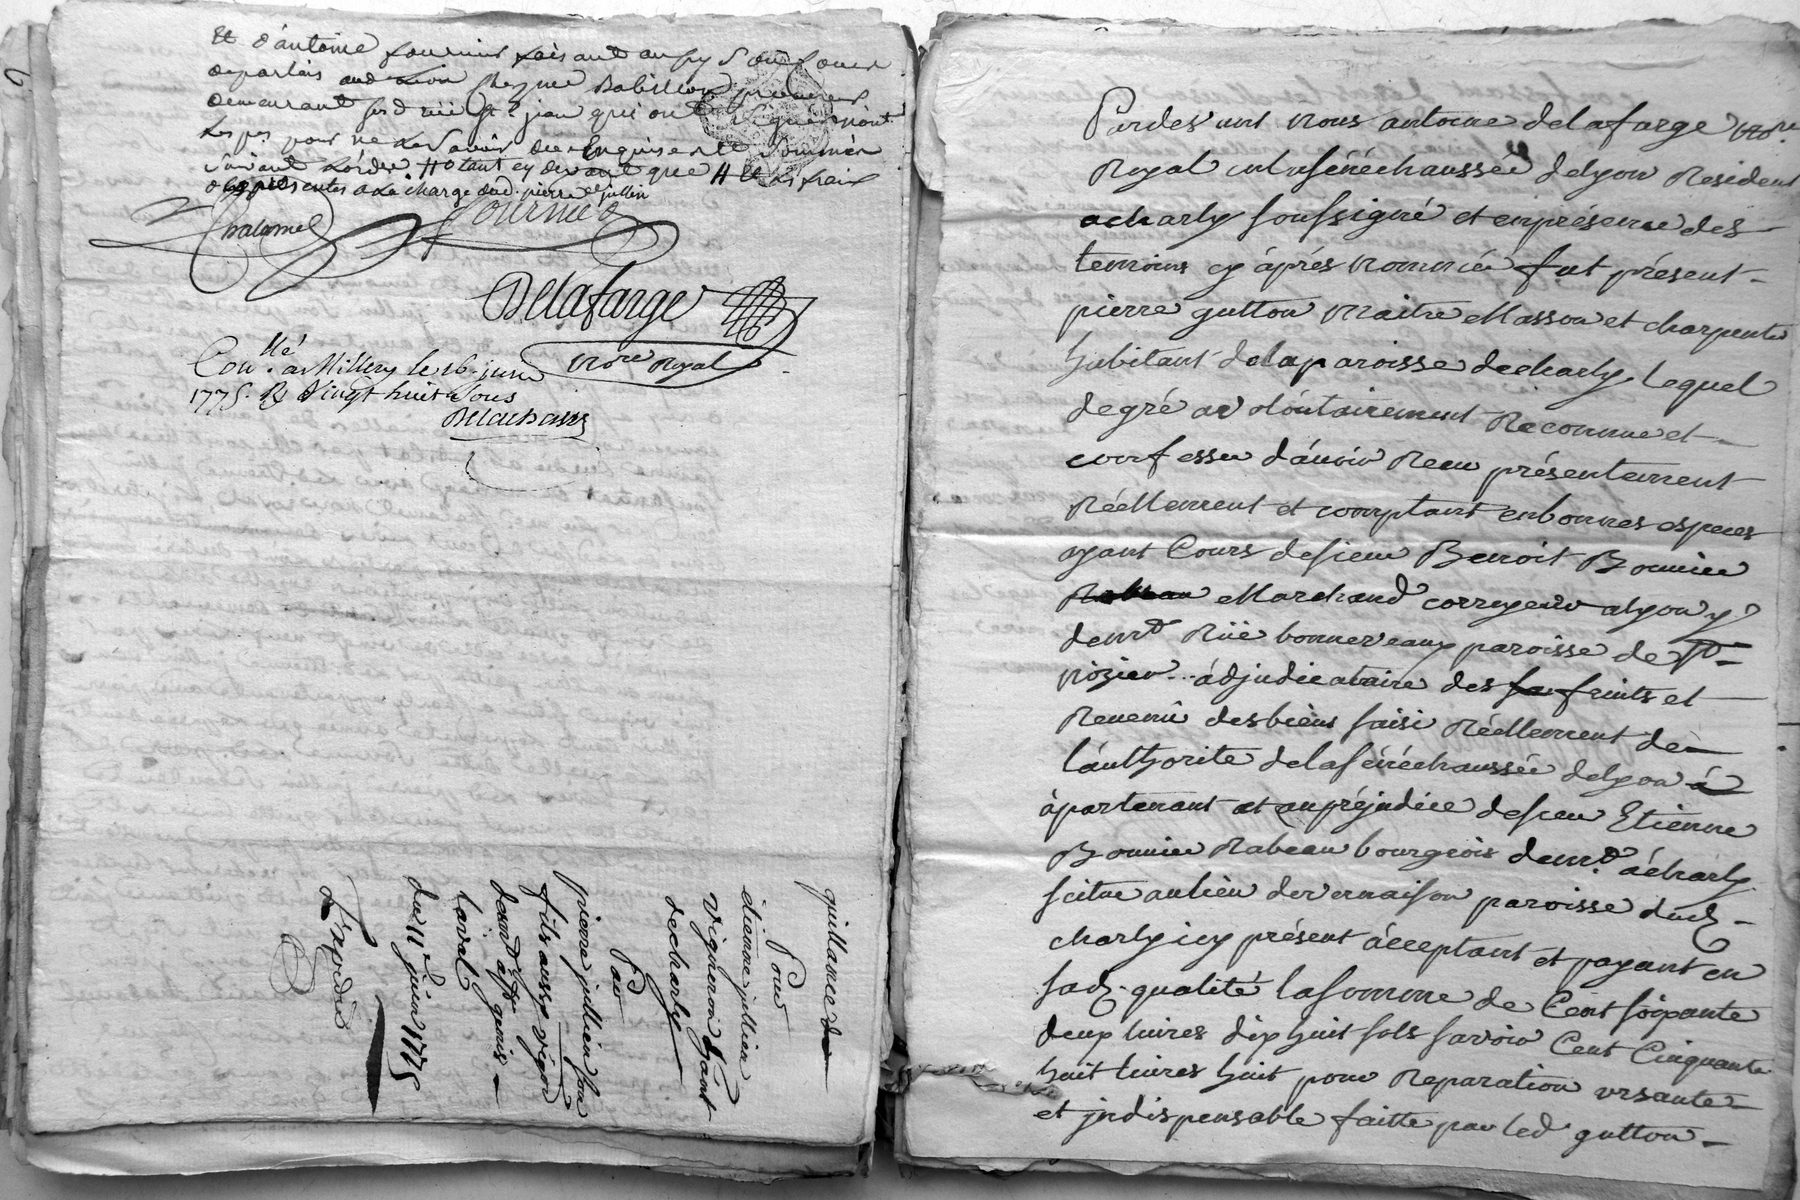 Et d'antoine fournier faisant aussy
demeurant sus d rüe St jean qui ont signé non
les p^es pour ne le savoir de ce Enquis et Sommés
suivant l'ordre
des présentes a la charge dud. pierre jullien
Chalamel
fournier
Delafarge
No^re Royal
Con^llé a Millery le 16 juin
1775. R Vingt huit sous
Delachassz
quittance de
Pour
étienne jullien
vigneron hant
de charly
Par
pierre jullien son
fils aussy vigon
demt a St genis
laval
du 11^e juin 1775
Expédié
Pardevant Nous antoine delafarge No^re
Royal en la sénéchaussée de lyon Resident
a charly soussigné et en présence des
temoins cy àprés nommés fut présent
pierre gutton Maitre Masson et charpentie
habitant de la paroisse de charly, lequel
de gré a volóntairement Reconnu et
confessé d'auoir Receu présentement
Réellement et comptant en bonnes especes
ayant Cours de sieur Benoit Bonnier
Rabeau Marchand corroyeur a lyon y
dem^t Rüe bonneveaux paroisse de St
nizier .. ádjudicataire des fruits et
Revenû des biens saisi Réellement de
l'authorité de la sénéchaussée de lyon á
ápartenant et au préjudice de sieur Etienne
Bonnier Rabeau bourgeois dem^t á charly
scitué au lieu de vernaison paroisse dud
charly icy présent ácceptant et payant en
sad. qualité la somme de Cent soixante
deux livres dix huit sols savoir Cent Cinquante
huit livres huit pour Reparation Ursante
et jndispensable faitte par led gutton